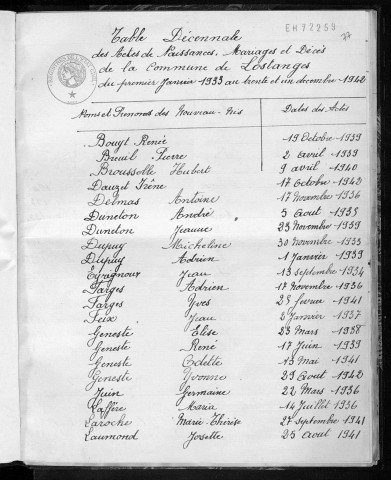 EH 72259
77
Table Décennale
des Actes de Naissances, Mariages et Décès
de la Commune de Lostanges
du premier Janvier 1933 au trente et un decembre 1942
Noms et Prenoms des Nouveau-Nés Dates des Actes
Bouyt Renée 19 Octobre 1939
Breuil Pierre 2 avril 1939
Brousolle Hubert 9 avril 1940
Dauzet Irène 17 Octobre 1942
Delmas Antoine 17 Novembre 1936
Dunclon André 5 Aout 1935
Dunclon Jeanne 23 Novembre 1939
Dupuy Micheline 30 novembre 1933
Dupuy Adrien 1 Janvier 1939
Espagnoux Jean 13 septembre 1934
Farges Adrien 17 Novembre 1936
Farges Yves 25 fevrier 1941
Feix Jean 2 Janvier 1937
Geneste Elise 23 Mars 1938
Geneste René 17 Juin 1939
Geneste Odette 13 Mai 1941
Geneste Yvonne 29 Aout 1942
Juin Germaine 22 Mars 1936
Laffère Maria 14 Juillet 1936
Laroche Marie-Thérèse 27 septembre 1941
Laumond Josette 25 Aout 1941